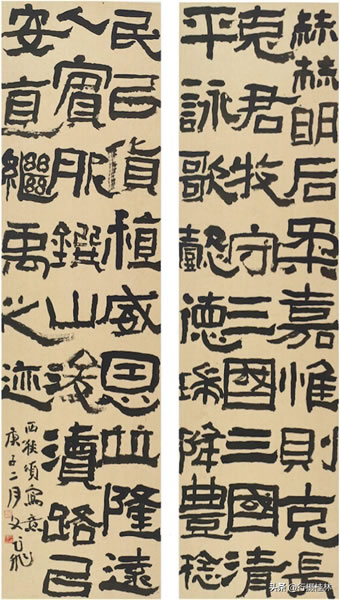 赫赫明后柔嘉惟則克長
克君牧守三國三國清
平詠歌懿德瑞降豊稔
民㠯貨稙威恩竝隆遠
人賓服鐉山浚瀆路㠯
安直繼禹之迹
西狹頌寫意
庚午二月
头条@行摄桂林